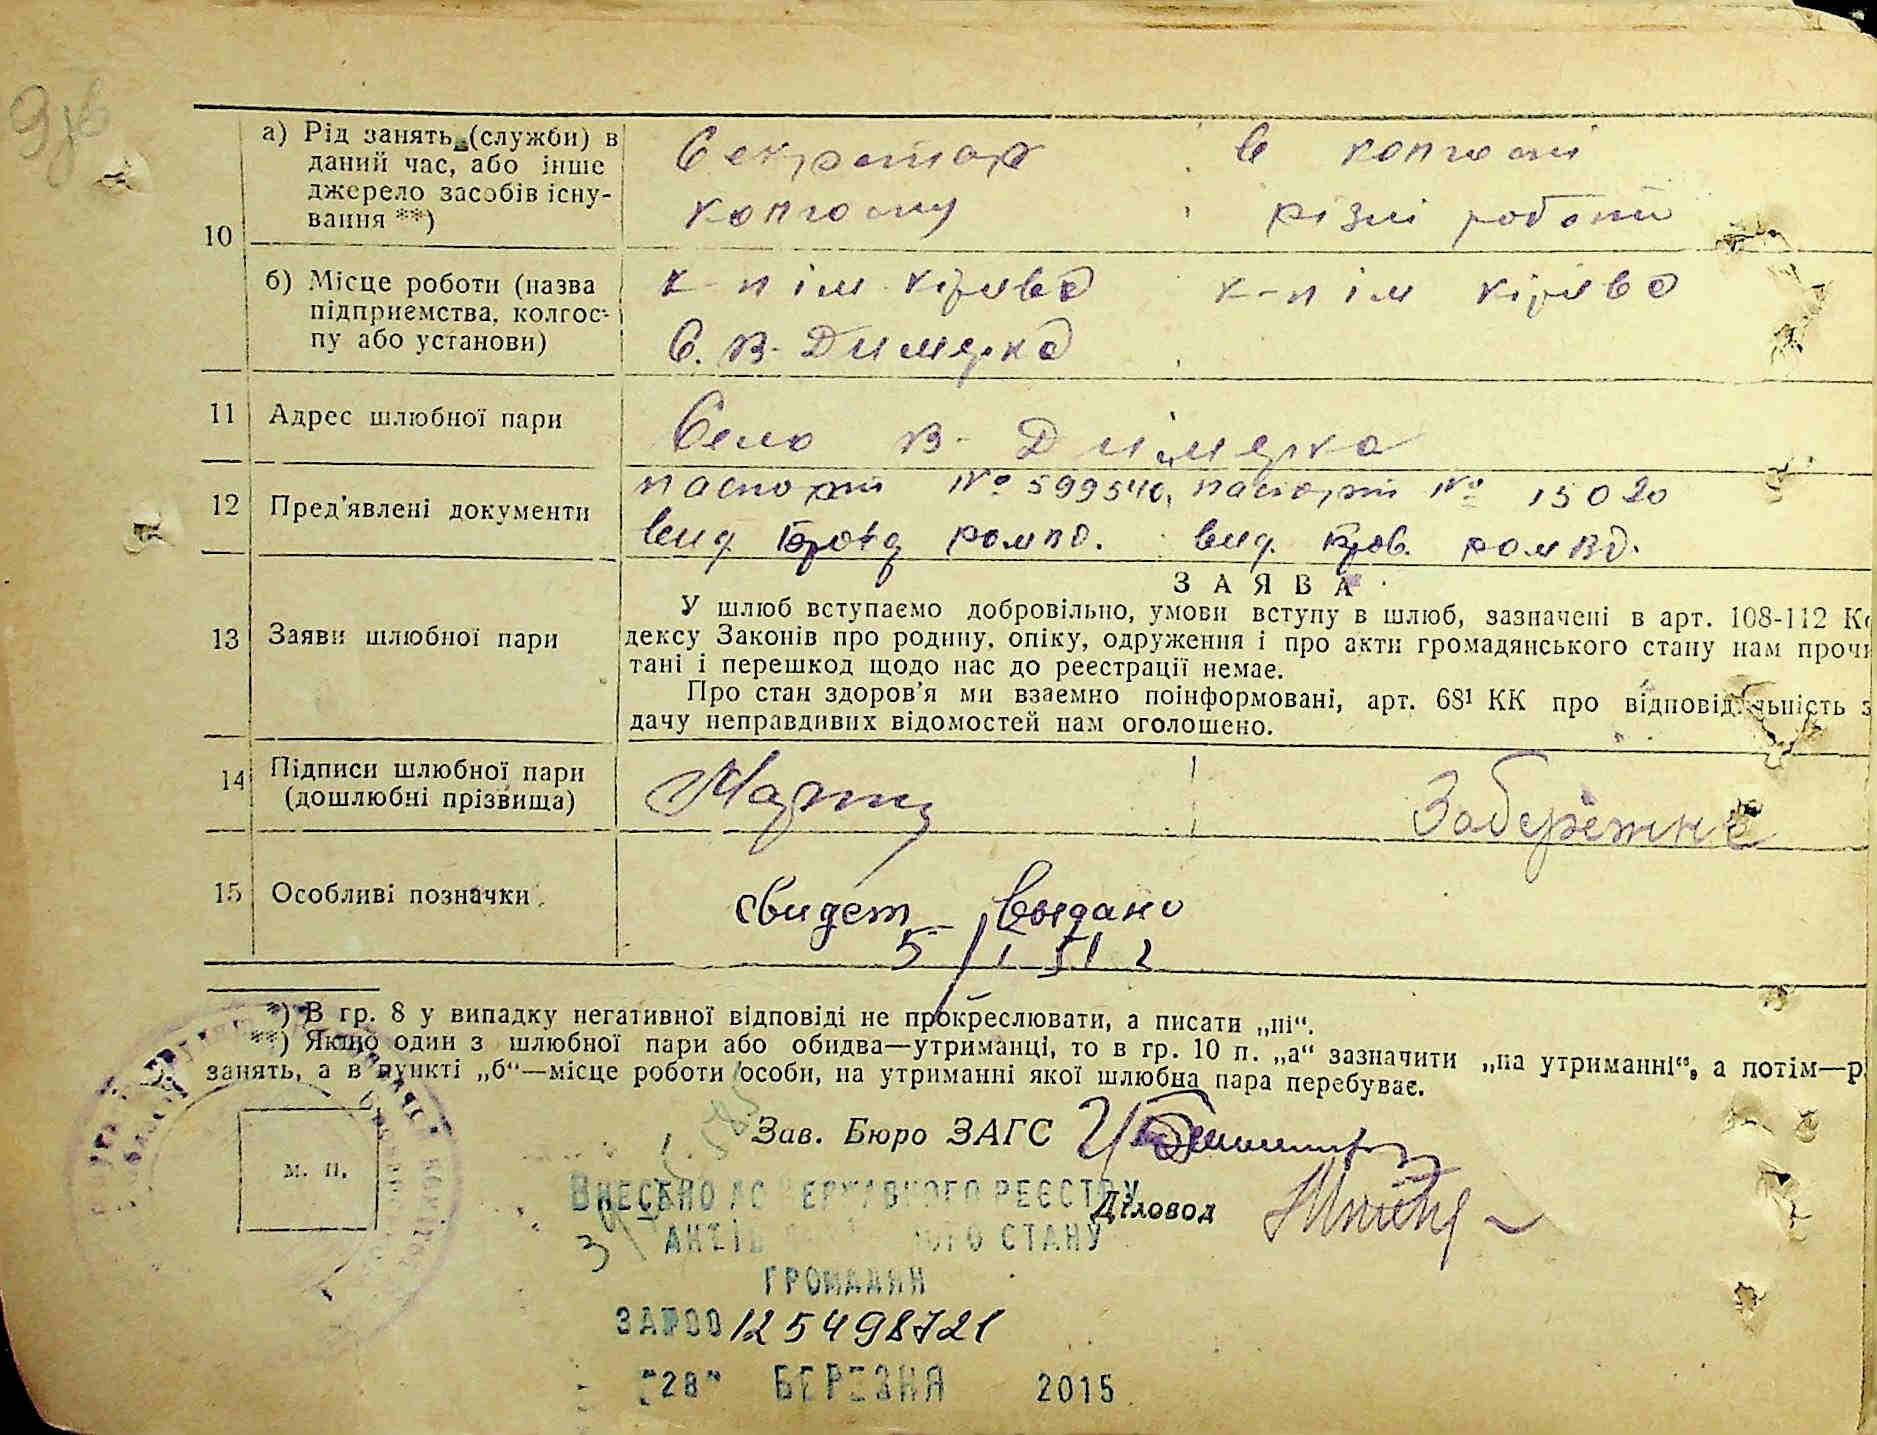 а) Рід занять (служби) в
даний час, або інше
джерело засобів існу-
вання **)
Секретар
колгоспу
в колгоспі
різні роботи
10
б) Місце роботи (назва
підприємства, колгос-
пу або установи)
к-п ім кірова
С. В-Димерка
к-п ім кірова
11 Адрес шлюбної пари
Село В-Димерка
12 Пред'явлені документи
паспорт № 599540, паспорт № 15020
вид. Бров. вид. Бров.
ЗАЯВА
13 Заяви шлюбної пари
У шлюб вступаємо добровільно, умови вступу в шлюб, зазначені в арт. 108-112 Ко
дексу Законів про родину, опіку, одруження і про акти громадянського стану нам прочи
тані і перешкод щодо нас до реєстрації немає.
Про стан здоров'я ми взаємно поінформовані, арт. 68¹ КК про відповідальність з
дачу неправдивих відомостей нам оголошено.
14 Підписи шлюбної пари
(дошлюбні прізвища)
Забережне
15 Особливі позначки
свидет выдано
5/1 51
*) В гр. 8 у випадку негативної відповіді не прокреслювати, а писати „ні“.
**) Якщо один з шлюбної пари або обидва—утриманці, то в гр. 10 п. „а“ зазначити „на утриманні“, а потім—р
занять, а в пункті „б“—місце роботи особи, на утриманні якої шлюбна пара перебуває.
Зав. Бюро ЗАГС
м. п.
ВНЕСЕНО ДО ДЕРЖАВНОГО РЕЄСТРУ
Діловод
АКТІВ СТАНУ
ГРОМАДЯН
ЗА №00125498721
"28" БЕРЕЗНЯ 2015